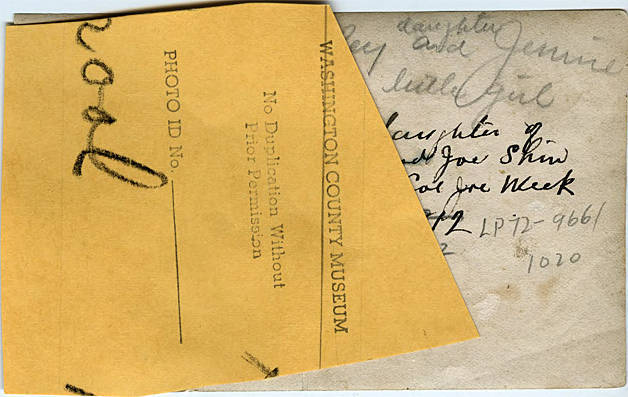 WASHINGTON COUNTY MUSEUM
No Duplication Without
Prior Permission
PHOTO ID No.
daughter
ey and Jennie
little girl
daughter of
Joe Shin
Joe Meek
LP72-9661
1020